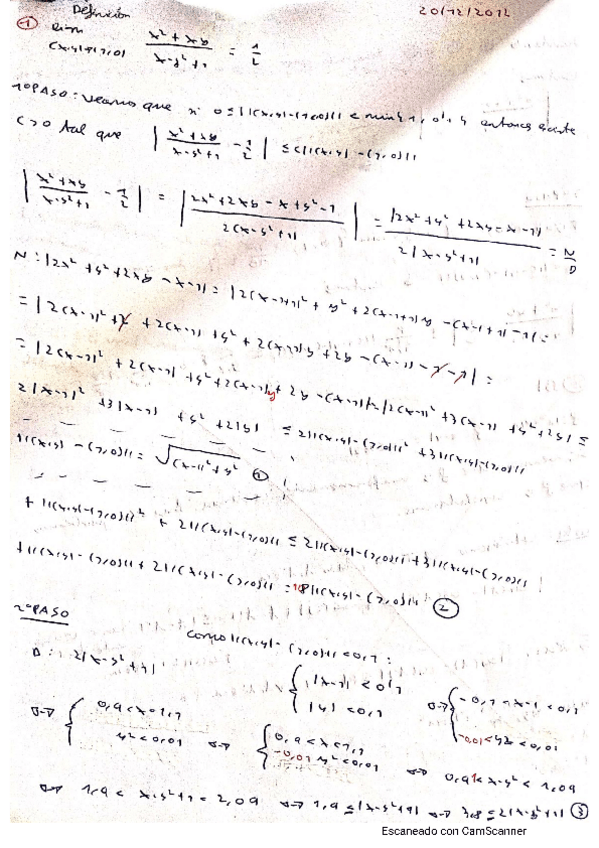 Definición
20/12/2012
① lim (x,y)→(1,0) x²+xy / x-y²+1 = 1/2
1º PASO: Veamos que si 0≤||(x,y)-(1,0)|| < min{1, 0'1} entonces existe
C>0 tal que | x²+xy / x-y²+1 - 1/2 | ≤ C||(x,y)-(1,0)||
| x²+xy / x-y²+1 - 1/2 | = | 2x²+2xy-x+y²-1 / 2(x-y²+1) | = |2x²+y²+2xy-x-1| / 2|x-y²+1| = N/D
N: |2x²+y²+2xy-x-1| = |2(x-1+1)²+y²+2(x-1+1)y-(x-1+1)-1| =
= |2(x-1)²+
+2(x-1)+y²+2(x-1)y+2y-(x-1)-1-1| =
= |2(x-1)²+2(x-1)+y²+2(x-1)y+2y-(x-1)
|2(x-1)²+3(x-1)+y²+2y| ≤
2|x-1|²+3|x-1|+y²+2|y| ≤ 2||(x,y)-(1,0)||²+3||(x,y)-(1,0)||
||(x,y)-(1,0)|| = √(x-1)²+y² ①
+||(x,y)-(1,0)||²+2||(x,y)-(1,0)|| ≤ 2||(x,y)-(1,0)||+3||(x,y)-(1,0)||
+||(x,y)-(1,0)||+2||(x,y)-(1,0)|| = 8||(x,y)-(1,0)|| ②
2º PASO
Como ||(x,y)-(1,0)|| < 0,1:
D: 2|x-y²+1|
{ |x-1| < 0'1
|y| < 0,1
⇔ { -0,1 < x-1 < 0,1
-0,01 < y² < 0,01
⇔ { 0,9 < x < 1,1
y² < 0,01
⇔ { 0,9 < x < 1,1
-0,01 y² < 0,01
⇔ 0,91 < x-y² < 1,09
⇔ 1,9 < x-y²+1 < 2,09 ⇔ 1,9 ≤ |x-y²+1| ⇔ 3,8 ≤ 2|x-y²+1| ③
Escaneado con CamScanner